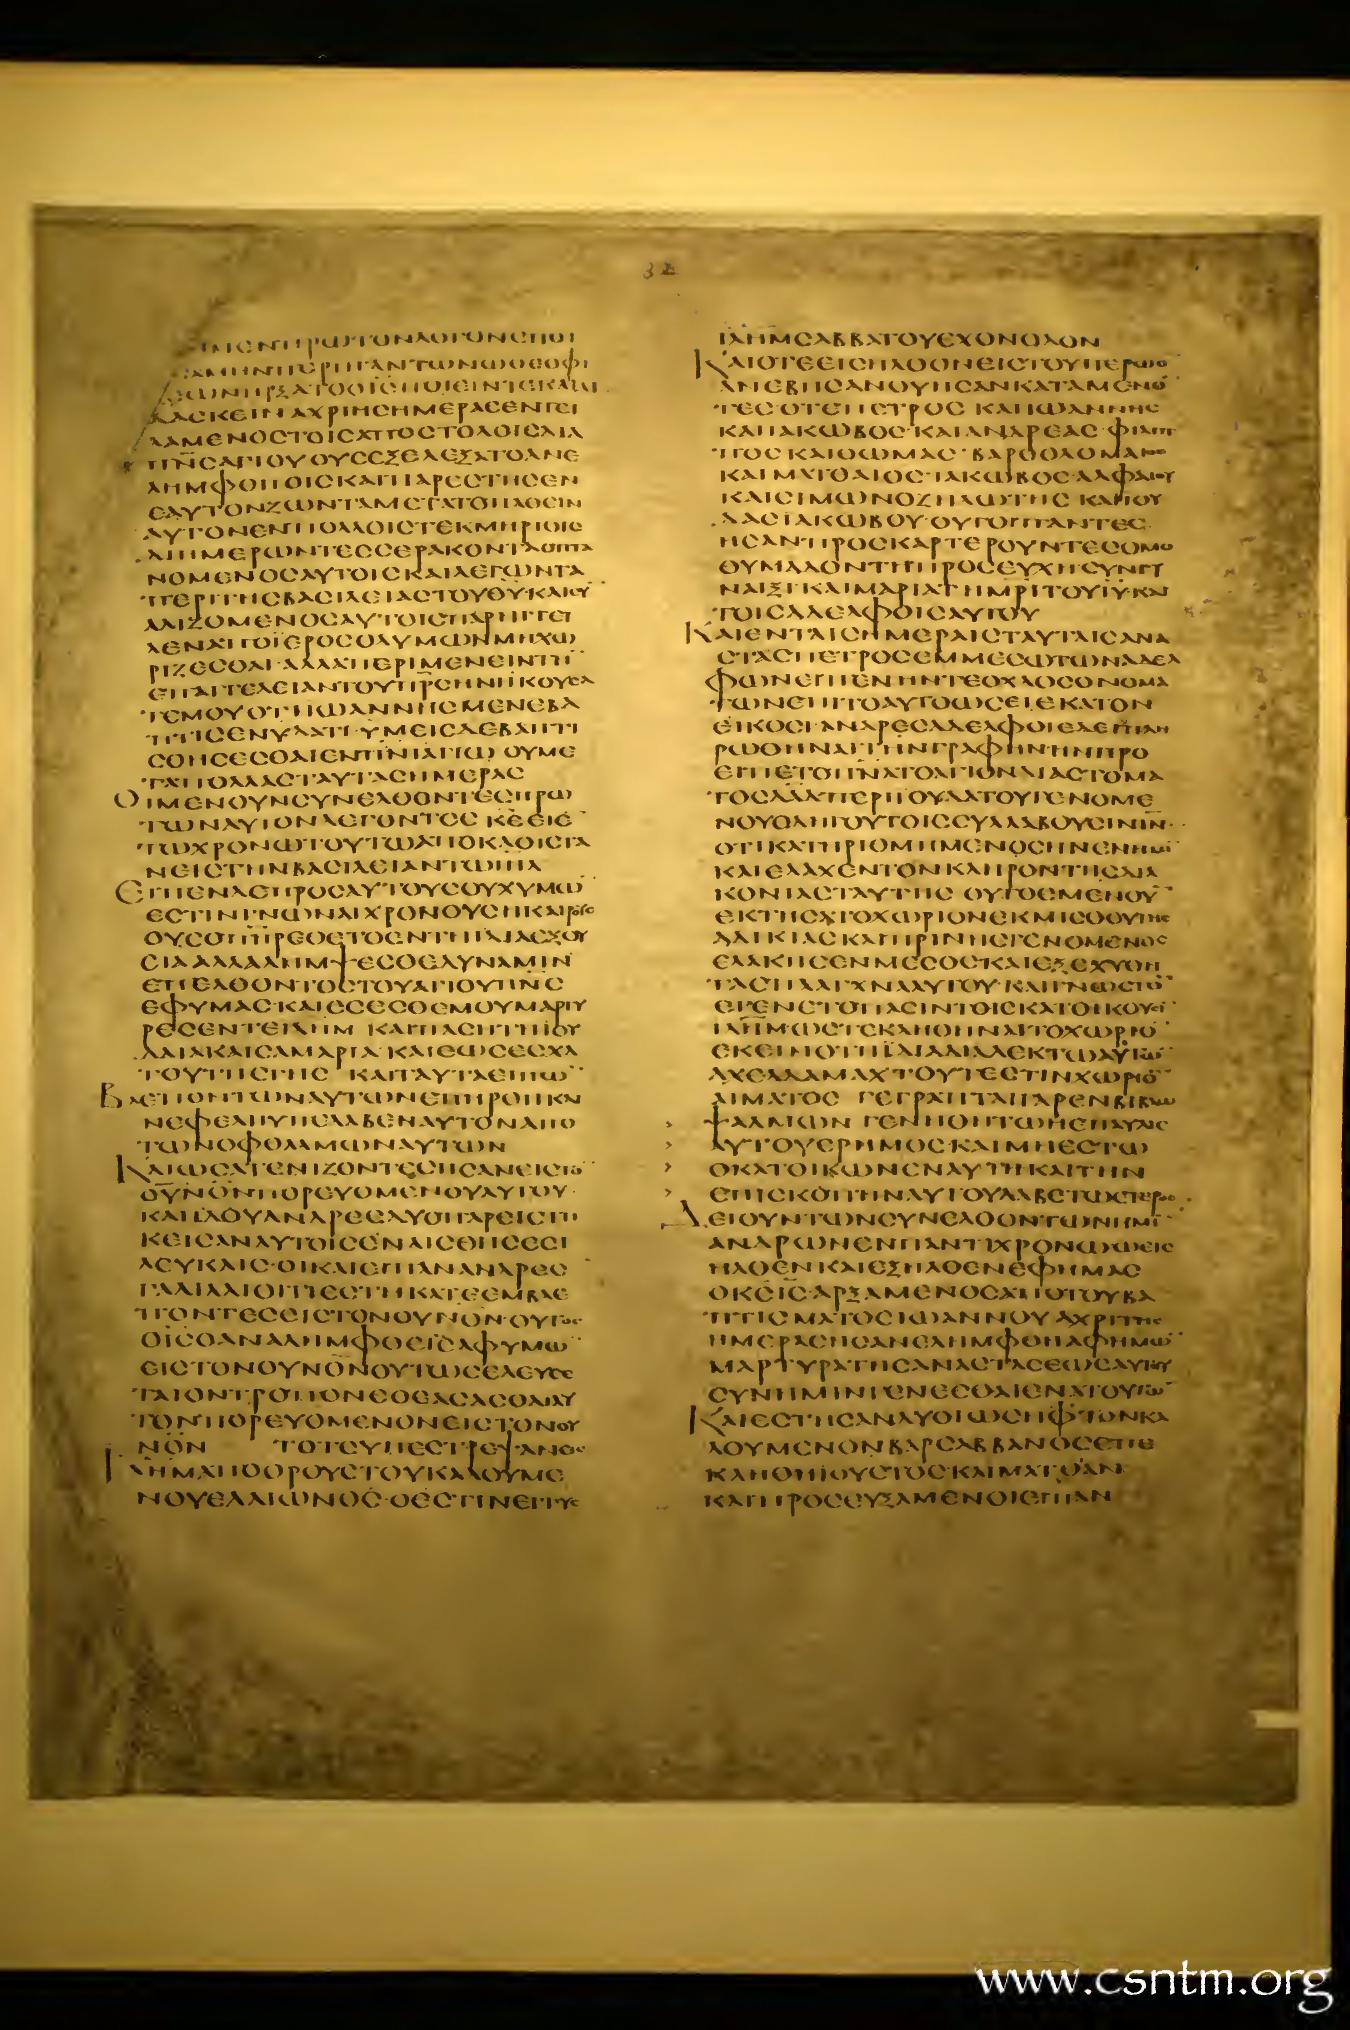 32
ΜΕΝΠΡΩΤΟΝΛΟΓΟΝΕΠΟΙ
ΣΑΜΗΝΠΕΡΙΠΑΝΤΩΝΩΘΕΟΦΙ
ΛΕΩΝΗΡΞΑΤΟΟΙ̅Σ̅ΠΟΙΕΙΝΤΕΚΑΙΔΙ
ΔΑΣΚΕΙΝΑΧΡΙΗΣΗΜΕΡΑΣΕΝΤΕΙ
ΛΑΜΕΝΟΣΤΟΙΣΑΠΟΣΤΟΛΟΙΣΔΙΑ
Π̅Ν̅Σ̅ΑΓΙΟΥΟΥΣΕΞΕΛΕΞΑΤΟΑΝΕ
ΛΗΜΦΘΗΟΙΣΚΑΙΠΑΡΕΣΤΗΣΕΝ
ΕΑΥΤΟΝΖΩΝΤΑΜΕΤΑΤΟΠΑΘΕΙΝ
ΑΥΤΟΝΕΝΠΟΛΛΟΙΣΤΕΚΜΗΡΙΟΙΣ
ΔΙΗΜΕΡΩΝΤΕΣΣΕΡΑΚΟΝΤΑΟΠΤΑ
ΝΟΜΕΝΟΣΑΥΤΟΙΣΚΑΙΛΕΓΩΝΤΑ
ΠΕΡΙΤΗΣΒΑΣΙΛΕΙΑΣΤΟΥΘ̅Υ̅ΚΑΙΣΥ
ΑΛΙΖΟΜΕΝΟΣΑΥΤΟΙΣΠΑΡΗΓΓΕΙ
ΛΕΝΑΠΟΙΕΡΟΣΟΛΥΜΩΝΜΗΧΩ
ΡΙΖΕΣΘΑΙ·ΑΛΛΑΠΕΡΙΜΕΝΕΙΝΤΗ̅
ΕΠΑΓΓΕΛΕΙΑΝΤΟΥΠ̅Ρ̅Σ̅ΗΝΗΚΟΥΣΑ
ΤΕΜΟΥΟΤΙΙΩΑΝΝΗΣΜΕΝΕΒΑ
ΠΤΙΣΕΝΥΔΑΤΙ·ΥΜΕΙΣΔΕΒΑΠΤΙ
ΣΘΗΣΕΣΘΑΙΕΝΠ̅Ν̅Ι̅ΑΓΙΩ·ΟΥΜΕ
ΤΑΠΟΛΛΑΣΤΑΥΤΑΣΗΜΕΡΑΣ
ΟΙΜΕΝΟΥΝΣΥΝΕΛΘΟΝΤΕΣΗΡΩ
ΤΩΝΑΥΤΟΝΛΕΓΟΝΤΕΣ Κ̅Ε̅ΕΙΕ̅
ΤΩΧΡΟΝΩΤΟΥΤΩΑΠΟΚΑΘΙΣΤΑ
ΝΕΙΣΤΗΝΒΑΣΙΛΕΙΑΝΤΩΙ̅Η̅Λ̅
ΕΙΠΕΝΔΕΠΡΟΣΑΥΤΟΥΣΟΥΧΥΜΩ̅
ΕΣΤΙΝΓΝΩΝΑΙΧΡΟΝΟΥΣΗΚΑΙΡΟΥΣ
ΟΥΣΟΠ̅Η̅Ρ̅ΕΘΕΤΟΕΝΤΗΙΔΙΑΕΞΟΥ
ΣΙΑΑΛΛΑΛΗΜΨΕΣΘΕΔΥΝΑΜΙΝ
ΕΠΕΛΘΟΝΤΟΣΤΟΥΑΓΙΟΥΠ̅Ν̅Σ̅
ΕΦΥΜΑΣ·ΚΑΙΕΣΕΣΘΕΜΟΥΜΑΡΤΥ
ΡΕΣΕΝΤΕΙ̅Λ̅Η̅Μ̅ ΚΑΙΠΑΣΗΤΗΙΟΥ
ΔΑΙΑΚΑΙΣΑΜΑΡΙΑ·ΚΑΙΕΩΣΕΣΧΑ
ΤΟΥΤΗΣΓΗΣ ΚΑΙΤΑΥΤΑΕΙΠΩ̅
ΒΛΕΠΟΝΤΩΝΑΥΤΩΝΕΠΗΡΘΗΚΑΙ
ΝΕΦΕΛΗΥΠΕΛΑΒΕΝΑΥΤΟΝΑΠΟ
ΤΩΝΟΦΘΑΛΜΩΝΑΥΤΩΝ
ΚΑΙΩΣΑΤΕΝΙΖΟΝΤΕΣΗΣΑΝΕΙΣΤΟ̅
ΟΥ̅Ν̅Ο̅Ν̅ΠΟΡΕΥΟΜΕΝΟΥΑΥΤΟΥ·
ΚΑΙΙΔΟΥΑΝΔΡΕΣΔΥΟΠΑΡΕΙΣΤΗ
ΚΕΙΣΑΝΑΥΤΟΙΣΕΝΑΙΣΘΗΣΕΣΙ
ΛΕΥΚΑΙΣ·ΟΙΚΑΙΕΙΠΑΝΑΝΔΡΕΣ
ΓΑΛΙΛΑΙΟΙΤΙΕΣΤΗΚΑΤΕΕΜΒΛΕ
ΠΟΝΤΕΣΕΙΣΤΟΝΟΥΝ̅Ο̅Ν̅·ΟΥΤΟΣ
ΟΙ̅Σ̅ΟΑΝΑΛΗΜΦΘΕΙΣΑΦΥΜΩ̅
ΕΙΣΤΟΝΟΥΝ̅Ο̅Ν̅ΟΥΤΩΣΕΛΕΥΣΕ
ΤΑΙΟΝΤΡΟΠΟΝΕΘΕΑΣΑΣΘΑΙΑΥ
ΤΟΝΠΟΡΕΥΟΜΕΝΟΝΕΙΣΤΟΝΟΥ
Ν̅Ο̅Ν̅ ΤΟΤΕΥΠΕΣΤΡΕΨΑΝΕΙΣ
ΙΛΗΜΑΠΟΟΡΟΥΣΤΟΥΚΑΛΟΥΜΕ
ΝΟΥΕΛΑΙΩΝΟΣ·ΟΕΣΤΙΝΕΓΓΥΣ
Ι̅Λ̅Η̅Μ̅ΣΑΒΒΑΤΟΥΕΧΟΝΟΔΟΝ
ΚΑΙΟΤΕΕΙΣΗΛΘΟΝΕΙΣΤΟΥΠΕΡΩΟ̅
ΑΝΕΒΗΣΑΝΟΥΗΣΑΝΚΑΤΑΜΕΝΟ̅
ΤΕΣ ΟΤΕΠΕΤΡΟΣ ΚΑΙΙΩΑΝΝΗΣ
ΚΑΙΙΑΚΩΒΟΣ·ΚΑΙΑΝΔΡΕΑΣ·ΦΙΛΙΠ
ΠΟΣΚΑΙΘΩΜΑΣ·ΒΑΡΘΟΛΟΜΑΙΟΣ
ΚΑΙΜΑΤΘΑΙΟΣ·ΙΑΚΩΒΟΣ·ΑΛΦΑΙΟΥ
ΚΑΙΣΙΜΩΝΟΖΗΛΩΤΗΣ ΚΑΙΙΟΥ
ΔΑΣΙΑΚΩΒΟΥ·ΟΥΤΟΙΠΑΝΤΕΣ
ΗΣΑΝΠΡΟΣΚΑΡΤΕΡΟΥΝΤΕΣΟΜΟ
ΘΥΜΑΔΟΝΤΗΠΡΟΣΕΥΧΗΣΥΝΓΥ
ΝΑΙΞΙ·ΚΑΙΜΑΡΙΑΤΗΜ̅Ρ̅Ι̅ΤΟΥΙ̅Υ̅·ΚΑΙ
ΤΟΙΣΑΔΕΛΦΟΙΣΑΥΤΟΥ
ΚΑΙΕΝΤΑΙΣΗΜΕΡΑΙΣΤΑΥΤΑΙΣΑΝΑ
ΣΤΑΣΠΕΤΡΟΣΕΜΜΕΣΩΤΩΝΑΔΕΛ
ΦΩΝΕΙΠΕΝΗΝΤΕΟΧΛΟΣΟΝΟΜΑ
ΤΩΝΕΠΙΤΟΑΥΤΟΩΣΕΙΕΚΑΤΟΝ
ΕΙΚΟΣΙ·ΑΝΔΡΕΣΑΔΕΛΦΟΙΕΔΕΙΠΛΗ
ΡΩΘΗΝΑΙΤΗΝΓΡΑΦΗΝΗΝΠΡΟ
ΕΙΠΕΤΟΠ̅Ν̅Α̅ΤΟΑΓΙΟΝΔΙΑΣΤΟΜΑ
ΤΟΣΔΑ̅Δ̅ΠΕΡΙΙΟΥΔΑΤΟΥΓΕΝΟΜΕ
ΝΟΥΟΔΗΓΟΥΤΟΙΣΣΥΛΛΑΒΟΥΣΙΝΙ̅Ν̅·
ΟΤΙΚΑΤΗΡΙΘΜΗΜΕΝΟΣΗΝΕΝΗΜΙ̅
ΚΑΙΕΛΑΧΕΝΤΟΝΚΛΗΡΟΝΤΗΣΔΙΑ
ΚΟΝΙΑΣΤΑΥΤΗΣ ΟΥΤΟΣΜΕΝΟΥ̅
ΕΚΤΗΣΑΤΟΧΩΡΙΟΝΕΚΜΙΣΘΟΥΤΗΣ
ΑΔΙΚΙΑΣΚΑΙΠΡΗΝΗΣΓΕΝΟΜΕΝΟΣ
ΕΛΑΚΗΣΕΝΜΕΣΟΣΚΑΙΕΞΕΧΥΘΗ
ΤΑΣΠΛΑΓΧΝΑΑΥΤΟΥ·ΚΑΙΓΝΩΣΤΟ̅
ΕΓΕΝΕΤΟΠΑΣΙΝΤΟΙΣΚΑΤΟΙΚΟΥΣΙ̅
Ι̅Λ̅Η̅Μ̅·ΩΣΤΕΚΛΗΘΗΝΑΙΤΟΧΩΡΙΟ̅
ΕΚΕΙΝΟΤΗΙΔΙΑΔΙΑΛΕΚΤΩΑΥΤΩ̅
ΑΧΕΛΔΑΜΑΧ·ΤΟΥΤΕΣΤΙΝΧΩΡΙΟ̅
ΑΙΜΑΤΟΣ ΓΕΓΡΑΠΤΑΙΓΑΡΕΝΒΙΒΛΩ
ΨΑΛΜΩΝ ΓΕΝΗΘΗΤΩΗΕΠΑΥΛΙΣ
ΑΥΤΟΥΕΡΗΜΟΣ·ΚΑΙΜΗΕΣΤΩ
ΟΚΑΤΟΙΚΩΝΕΝΑΥΤΗ·ΚΑΙΤΗΝ
ΕΠΙΣΚΟΠΗΝΑΥΤΟΥΛΑΒΕΤΩΕΤΕΡΟΣ·
ΔΕΙΟΥΝΤΩΝΣΥΝΕΛΘΟΝΤΩΝΗΜΙ̅
ΑΝΔΡΩΝΕΝΠΑΝΤΙΧΡΟΝΩΩΕΙΣ
ΗΛΘΕΝΚΑΙΕΞΗΛΘΕΝΕΦΗΜΑΣ
ΟΚ̅Σ̅Ι̅Σ̅·ΑΡΞΑΜΕΝΟΣΑΠΟΤΟΥΒΑ
ΠΤΙΣΜΑΤΟΣΙΩΑΝΝΟΥ·ΑΧΡΙΤΗΣ
ΗΜΕΡΑΣΗΣΑΝΕΛΗΜΦΘΗΑΦΗΜΩ̅
ΜΑΡΤΥΡΑΤΗΣΑΝΑΣΤΑΣΕΩΣΑΥΤΟΥ
ΣΥΝΗΜΙΝΓΕΝΕΣΘΑΙΕΝΑΤΟΥΤΩ̅
ΚΑΙΕΣΤΗΣΑΝΔΥΟΙΩΣΗΦΤΟΝΚΑ
ΛΟΥΜΕΝΟΝΒΑΡΣΑΒΒΑΝΟΣΕΠΕ
ΚΛΗΘΗΙΟΥΣΤΟΣ·ΚΑΙΜΑΤΘΙΑΝ
ΚΑΙΠΡΟΣΕΥΞΑΜΕΝΟΙΕΙΠΑΝ
www.csntm.org